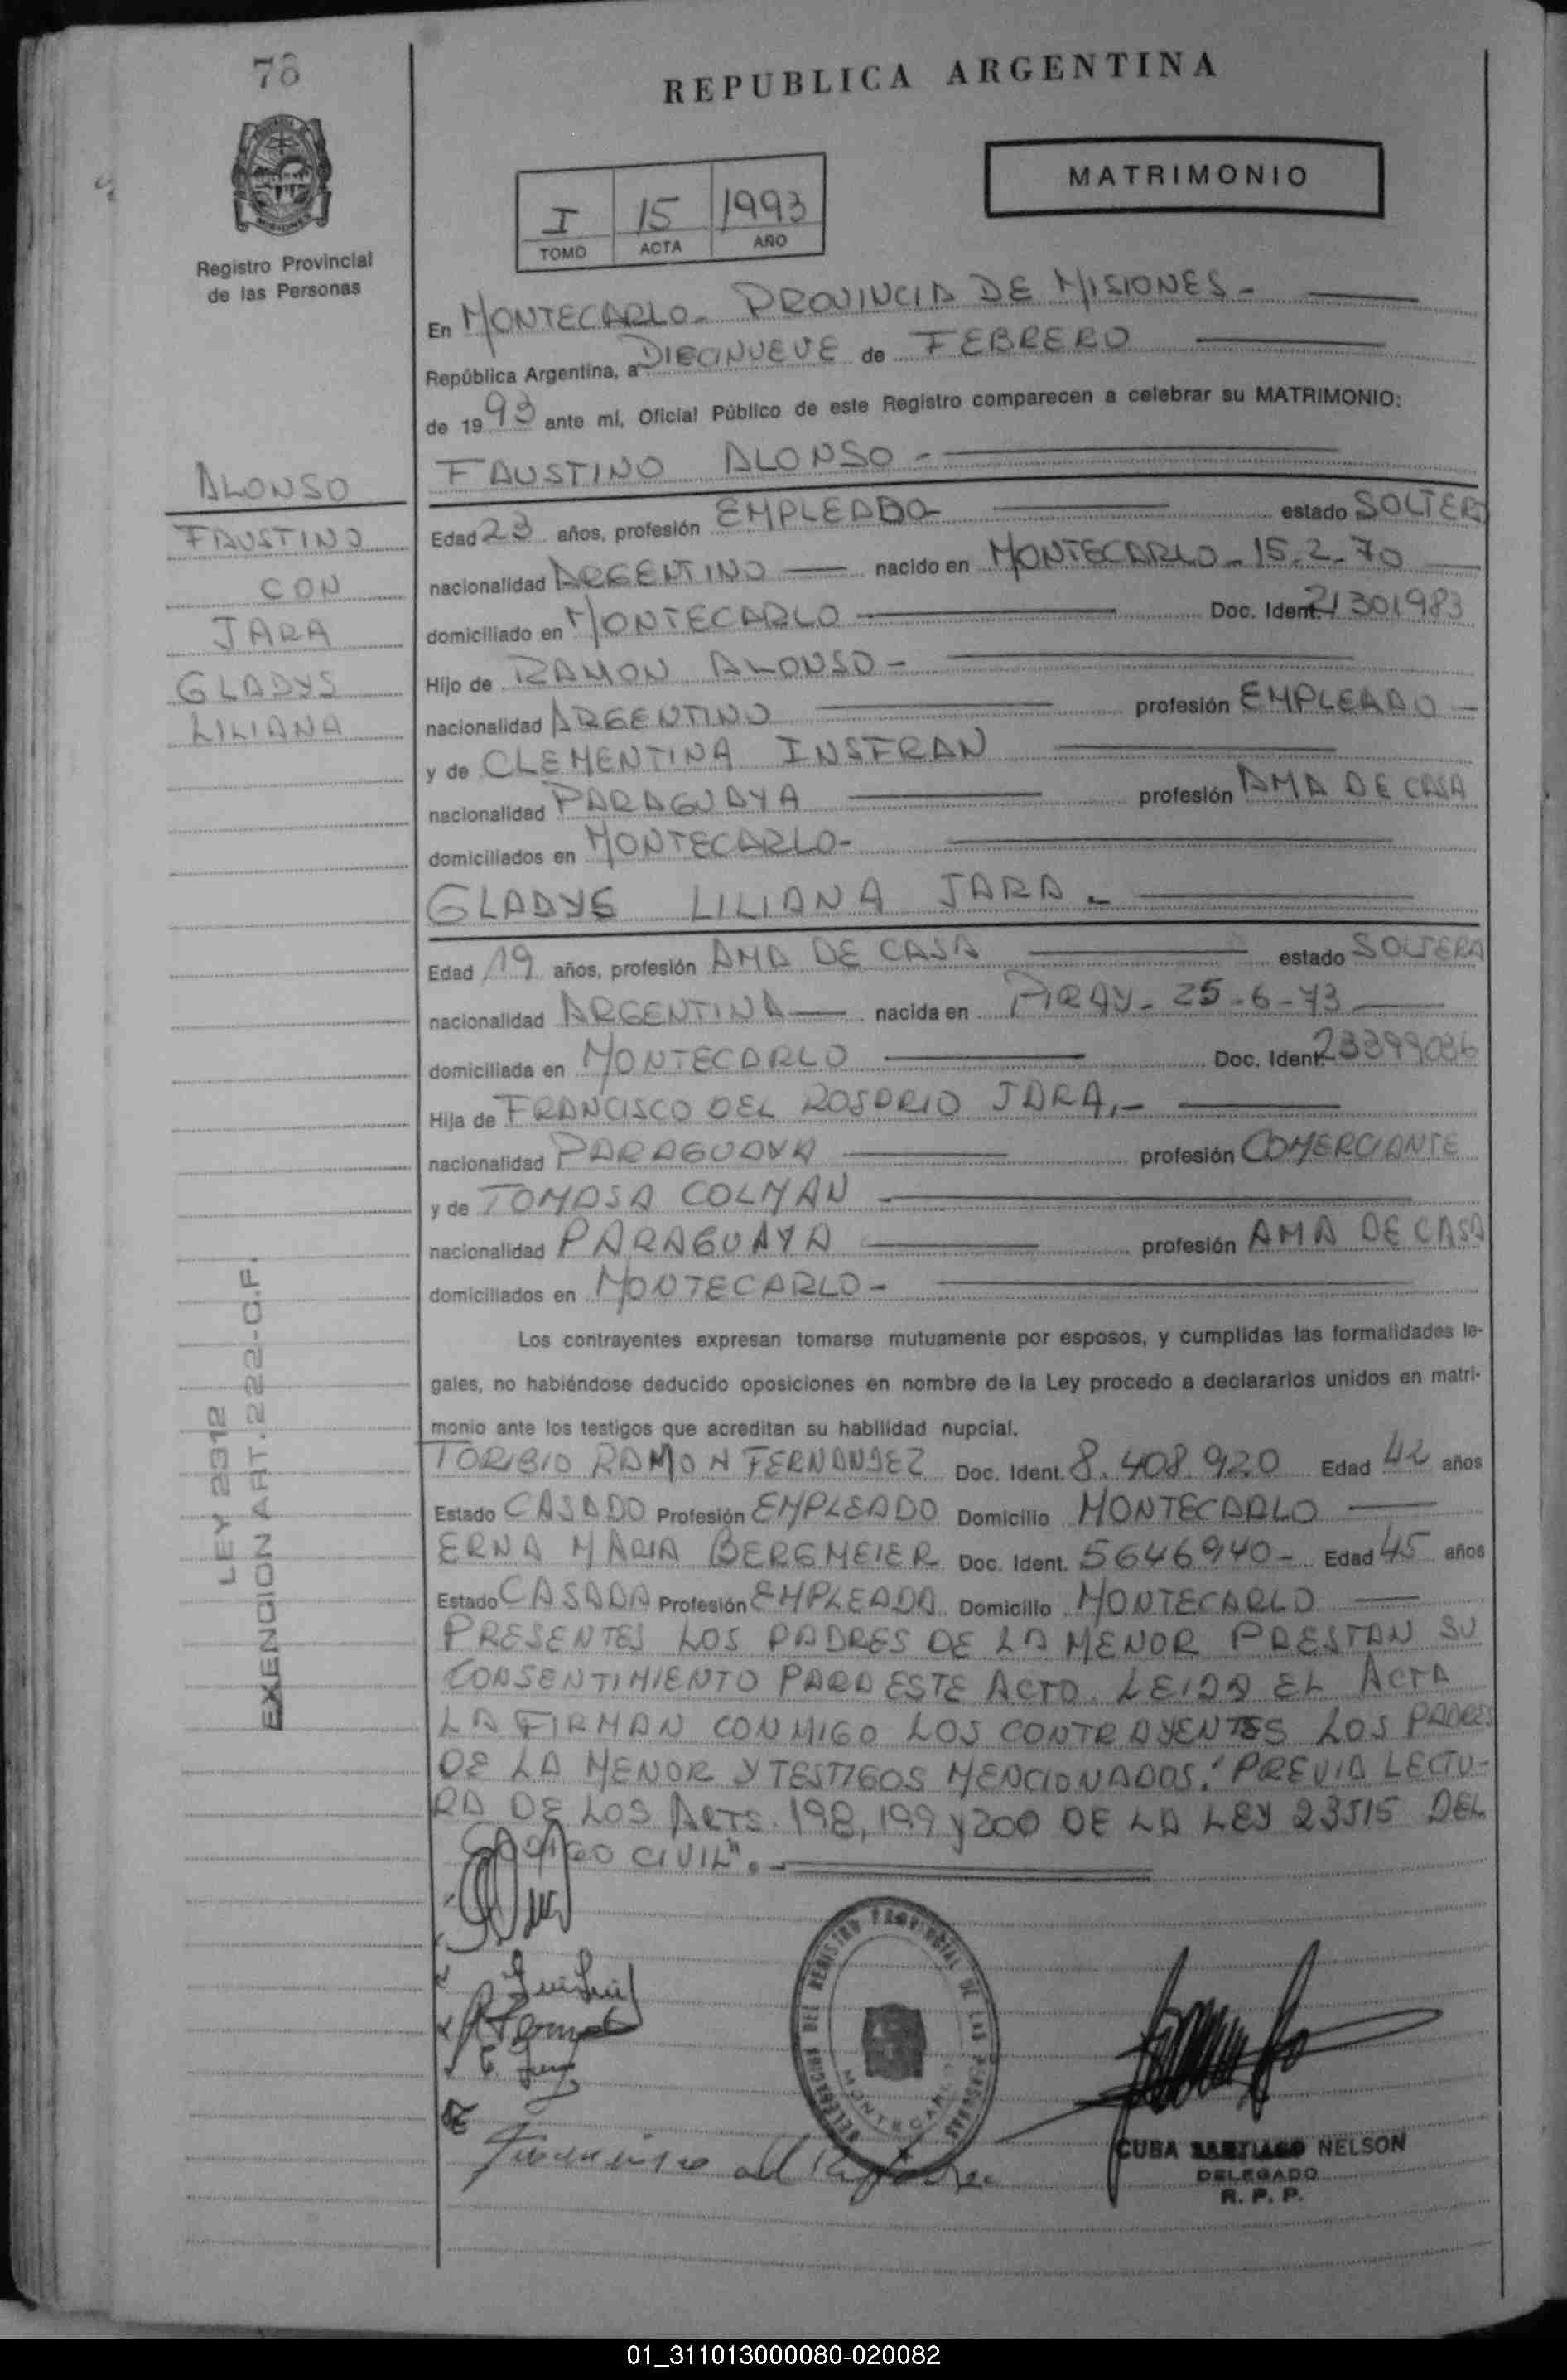 76
REPUBLICA ARGENTINA
MATRIMONIO
I 15 1993
TOMO ACTA AÑO
Registro Provincial
de las Personas
En MONTECARLO - PROVINCIA DE MISIONES -
República Argentina, a DIECINUEVE de FEBRERO
de 1993 ante mi, Oficial Público de este Registro comparecen a celebrar su MATRIMONIO:
FAUSTINO ALONSO -
ALONSO
FAUSTINO
CON
JARA
GLADYS
LILIANA
Edad 23 años, profesión EMPLEADO estado SOLTERO
nacionalidad ARGENTINO nacido en MONTECARLO - 15.2.70
domiciliado en MONTECARLO Doc. Ident. 21301983
Hijo de RAMON ALONSO -
nacionalidad ARGENTINO profesión EMPLEADO -
y de CLEMENTINA INSFRAN
nacionalidad PARAGUAYA profesión AMA DE CASA
domiciliados en MONTECARLO -
GLADYS LILIANA JARA -
Edad 19 años, profesión AMA DE CASA estado SOLTERA
nacionalidad ARGENTINA nacida en PIRAY - 25-6-73
domiciliada en MONTECARLO Doc. Ident.
Hija de FRANCISCO DEL ROSARIO JARA,-
nacionalidad PARAGUAYA profesión COMERCIANTE
y de TOMASA COLMAN
nacionalidad PARAGUAYA profesión AMA DE CASA
domiciliados en MONTECARLO -
Los contrayentes expresan tomarse mutuamente por esposos, y cumplidas las formalidades le-
gales, no habiéndose deducido oposiciones en nombre de la Ley procedo a declararlos unidos en matri-
monio ante los testigos que acreditan su habilidad nupcial.
TORIBIO RAMON FERNANDEZ Doc. Ident. 8.408.920 Edad 42 años
Estado CASADO Profesión EMPLEADO Domicilio MONTECARLO
ERNA MARIA BERGMEIER Doc. Ident. 5646940 - Edad 45 años
Estado CASADA Profesión EMPLEADA Domicilio MONTECARLO
PRESENTES LOS PADRES DE LA MENOR PRESTAN SU
CONSENTIMIENTO PARA ESTE ACTO. LEIDA EL ACTA
LA FIRMAN CONMIGO LOS CONTRAYENTES LOS PADRES
DE LA MENOR Y TESTIGOS MENCIONADOS. "PREVIA LECTU-
RA DE LOS ARTS. 198, 199 y 200 DE LA LEY 23515 DEL
CODIGO CIVIL". -
LEY 2312
EXENCION ART. 222-C.F.
DELEGACION DEL REGISTRO PROVINCIAL DE LAS PERSONAS
MONTECARLO
CUBA SANTIAGO NELSON
DELEGADO
R. P. P.
01_311013000080-020082